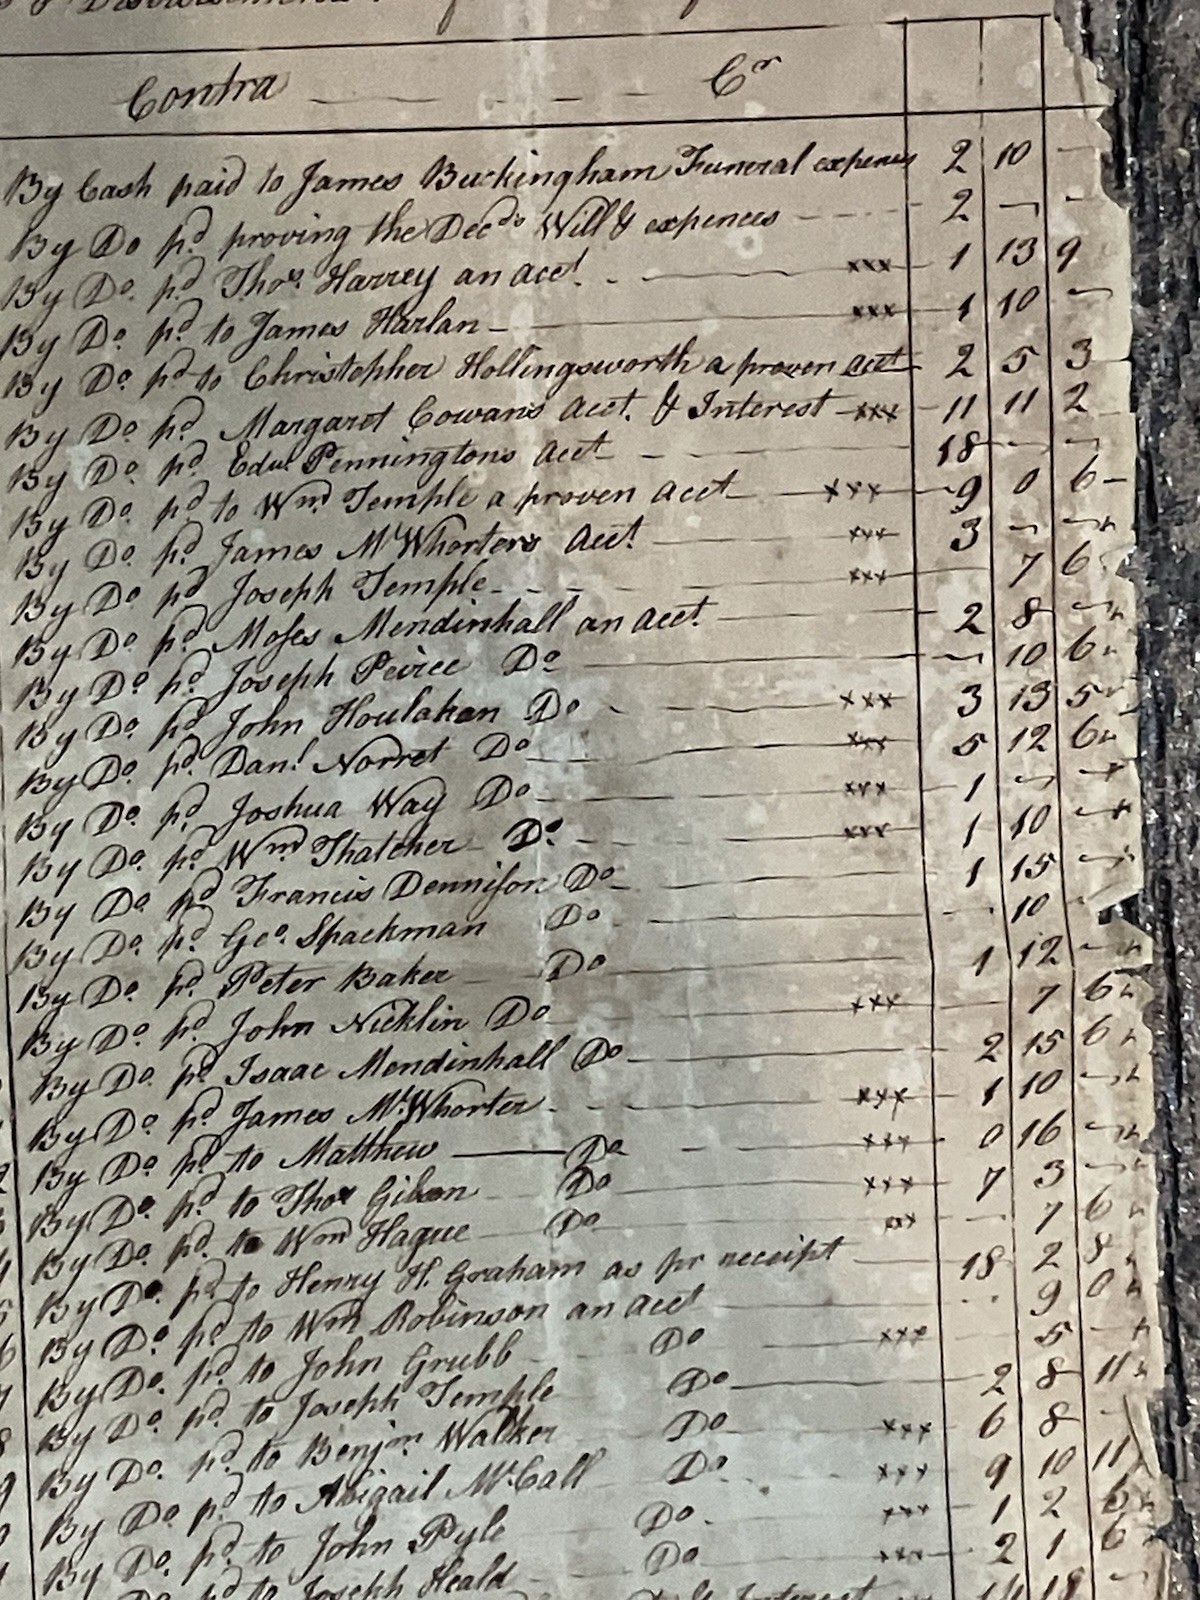 Contra Cr
By Cash paid to James Buckingham Funeral expences 2 10 —
By Do pd proving the Decds Will & expences 2 — —
By Do. pd Thos. Harrey an acct. xxx 1 13 9
By Do. pd to James Harlan xxx 1 10 —
By Do. pd to Christopher Hollingsworth a proven acct 2 5 3
By Do. pd. Margaret Cowans acct. & Interest xxx 11 11 2
By Do. pd. Edwd Penningtons acct 18 — —
By Do. pd to Wm Temple a proven acct xxx 9 0 6
By Do. pd. James McWhorters acct. xxx 3 — —
By Do. pd Joseph Temple xxx 7 6
By Do. pd. Moses Mendinhall an acct. 2 8 —
By Do. pd. Joseph Peirce Do — 10 6
By Do. pd. John Houlahan Do xxx 3 13 5
By Do. pd. Danl. Norret Do xxx 5 12 6
By Do. pd. Joshua Way Do xxx 1 — —
By Do. pd. Wm Thatcher Do. xxx 1 10 —
By Do. pd Francis Dennison Do 1 15 —
By Do. pd. Geo. Spackman Do 10
By Do. pd. Peter Baker Do 1 12 —
By Do. pd. John Nicklin Do xxx 7 6
By Do. pd. Isaac Mendinhall Do 2 15 6
By Do. pd. James McWhorter xxx 1 10 —
By Do. pd. to Matthew —— Do xxx 0 16 —
By Do. pd. to Thos Gibson Do xxx 7 3 —
By Do. pd. to Wm Hague Do xx 7 6
By Do. pd. to Henry H. Graham as pr receipt 18 2 8
By Do. pd to Wm Robinson an acct 9 0
By Do. pd. to John Grubb Do xxx 5 —
By Do. pd. to Joseph Temple Do 2 8 11
By Do. pd. to Benjmn Walker Do xxx 6 8 —
By Do. pd to Abigail McCall Do. xxx 9 10 11
By Do. pd. to John Pyle Do. xxx 1 2 6
pd to Joseph Heald Do xxx 2 1 6
& Interest 14 18 —